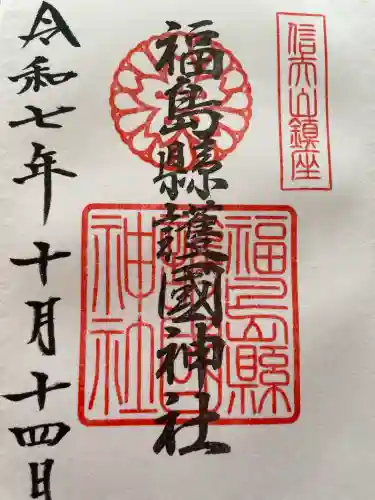 信夫山鎮座
福島縣護國神社
福島縣護國神社
令和七年十月十四日